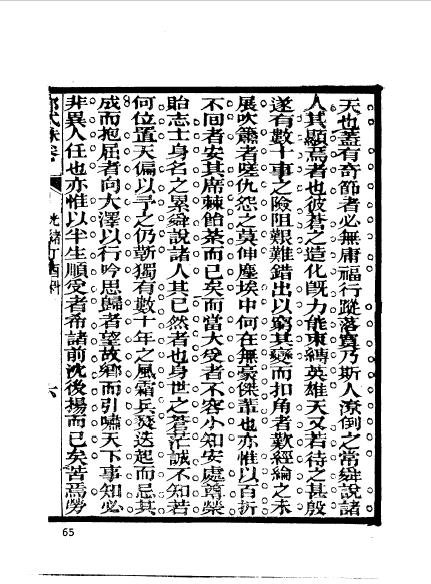 天也蓋有奇節者必無庸福行蹤落寞乃斯人潦倒之常舜說諸
人其顯焉者也彼蒼之造化既力能束縛英雄天又若待之甚殷
遂有數十事之險阻艱難錯出以窮其變而扣角者歎經綸之未
展吹簫者嗟仇怨之莫伸塵埃中何在無豪傑輩也亦惟以百折
不回者安其席棘飴荼而已矣而當大受者不容小知安處尊榮
貽志士身名之累舜說諸人其已然者也身世之蒼茫誠不知若
何位置天偏以予之仍斬獨有數十年之風霜兵燹迭起而忌其
成而抱屈者向大澤以行吟思歸者望故鄉而引嘯天下事知必
非異人任也亦惟以半生順受者希諸前沈後揚而已矣苦焉勞
光緒丁酉科 六
65